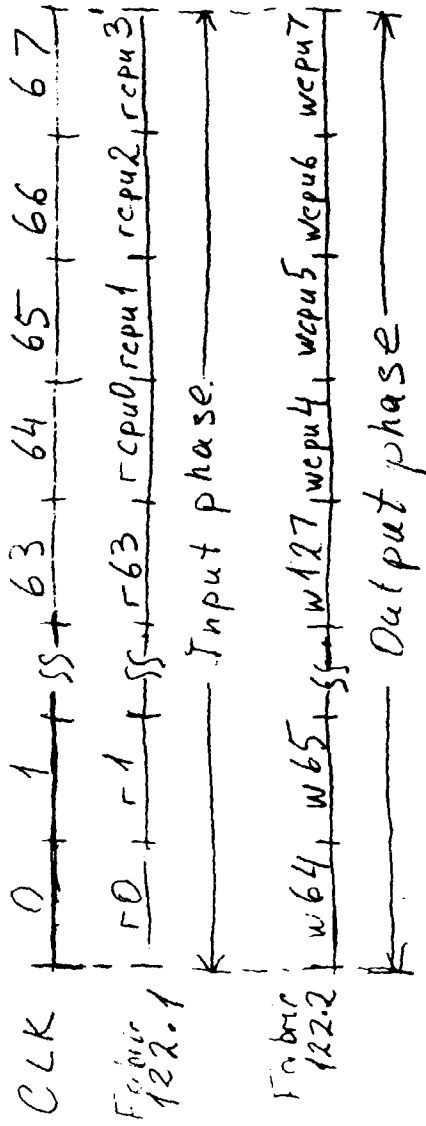 CLK 0 1 SS 63 64 65 66 67
Fabric 122.1 r0 r1 SS r63 rcpu0 rcpu1 rcpu2 rcpu3
Input phase
Fabric 122.2 w64 w65 SS w127 wcpu4 wcpu5 wcpu6 wcpu7
Output phase